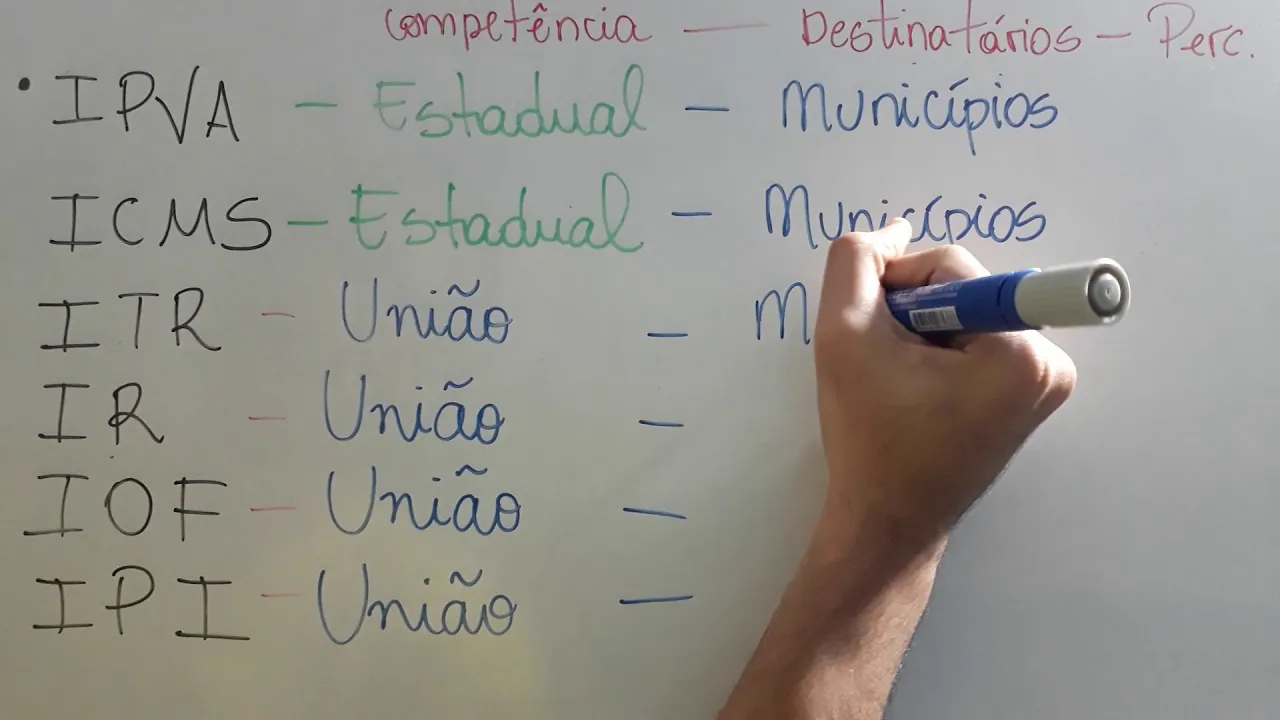 Competência — Destinatários — Perc.
• IPVA — Estadual — Municípios
ICMS — Estadual — Municípios
ITR — União — M
IR — União —
IOF — União —
IPI — União —